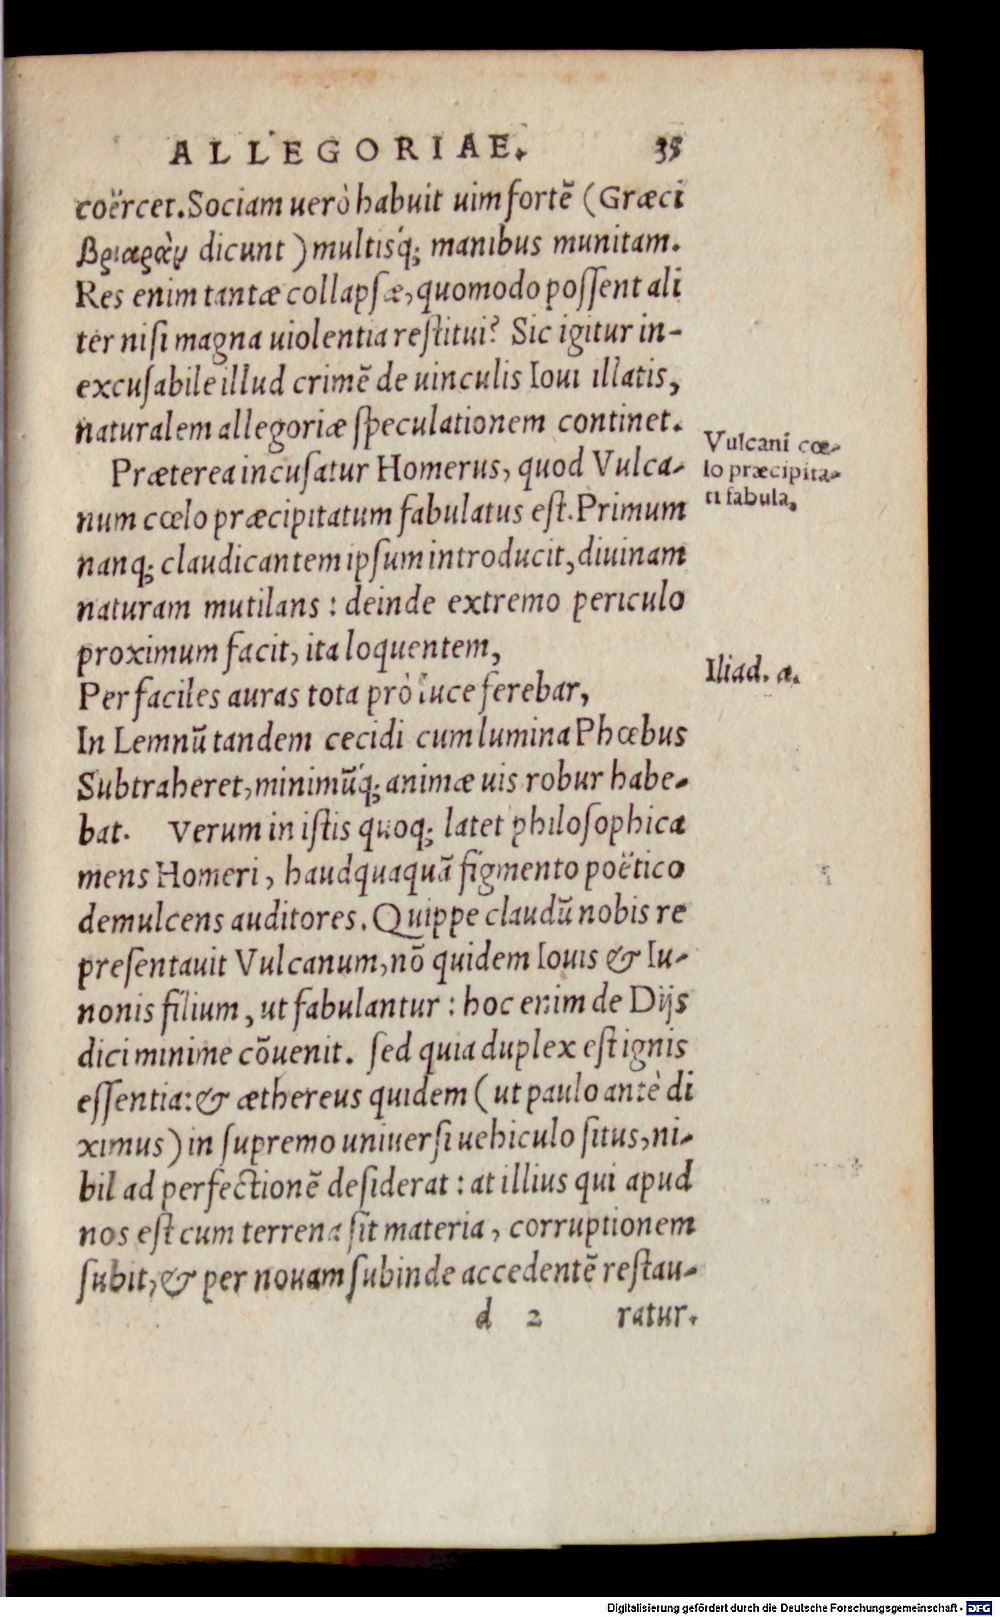 ALLEGORIAE. 35
coërcet. Sociam uerò habuit uim fortē (Græci
βριαρὰν dicunt) multisq́; manibus munitam.
Res enim tantæ collapsæ, quomodo possent ali
ter nisi magna uiolentia restitui? Sic igitur in-
excusabile illud crimē de uinculis Ioui illatis,
naturalem allegoriæ speculationem continet.
Præterea incusatur Homerus, quod Vulca-
num cœlo præcipitatum fabulatus est. Primum
nanq; claudicantem ipsum introducit, diuinam
naturam mutilans : deinde extremo periculo
proximum facit, ita loquentem,
Per faciles auras tota prò luce ferebar,
In Lemnū tandem cecidi cum lumina Phœbus
Subtraheret, minimūq́; animæ uis robur habe-
bat. Verum in istis quoq; latet philosophica
mens Homeri, haudquaquā figmento poëtico
demulcens auditores. Quippe claudū nobis re
presentauit Vulcanum, nō quidem Iouis & Iu-
nonis filium, ut fabulantur : hoc enim de Dijs
dici minime cōuenit. sed quia duplex est ignis
essentia: & æthereus quidem (ut paulo antè di
ximus) in supremo uniuersi uehiculo situs, ni-
hil ad perfectionē desiderat : at illius qui apud
nos est cum terrena sit materia, corruptionem
subit, & per nouam subinde accedentē restau-
d 2 ratur.
Vulcani cœ-
lo præcipita-
ti fabula.
Iliad. α.
Digitalisierung gefördert durch die Deutsche Forschungsgemeinschaft - DFG